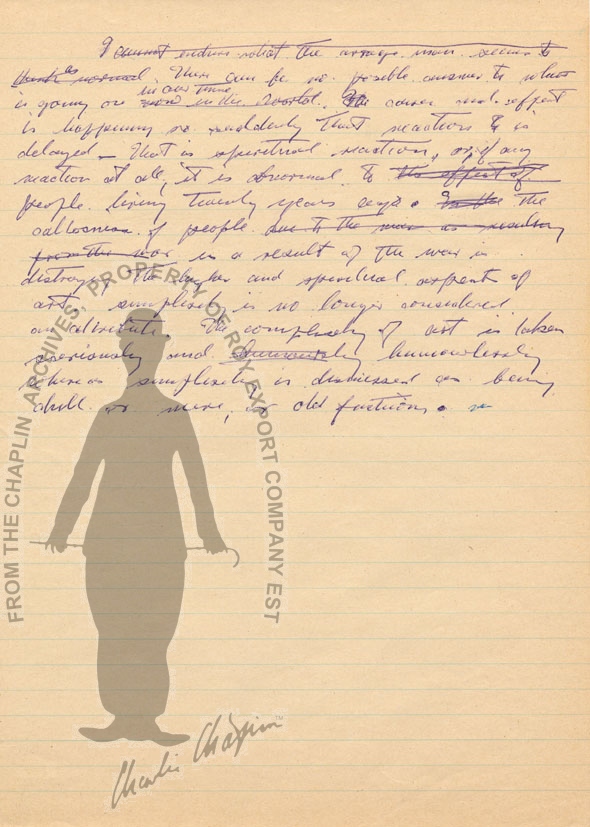 I cannot endure what the average man seems to
think as normal. There can be no possible answer to what
in our time
is going on now in the world. The cause and effect
is happening so suddenly that reaction to is
delayed – that is spiritual reaction, or if any
reaction at all, it is abnormal to the effect of
people living twenty years ago. In the The
callosness of people due to the war as resulting
from the war is a result of the war in
distroying the higher and spiritual aspect of
art, simplisity is no longer considered
an atribute. The complexity of art is taken
seariously and humourlessly
whereas simplisity is dismissed as being
dull or mere, or old fashion.
FROM THE CHAPLIN ARCHIVES, PROPERTY OF ROY EXPORT COMPANY EST
Charlie Chaplin